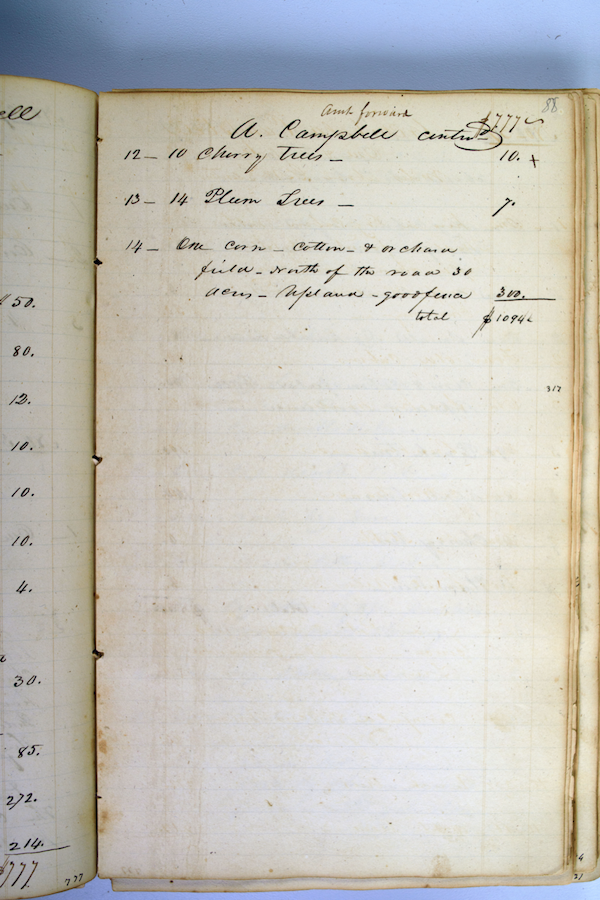 ell
$ 50.
80.
12.
10.
10.
10.
4.
30.
85.
272.
214.
$777
777
88
Amt forward
$777
A. Campbell contind
12 - 10 Cherry trees - 10. +
13 - 14 Plum Trees - 7.
14 - One corn - cotton - & orchard
field - North of the road 30
acres - Upland - good fence 300.
total $1094
317